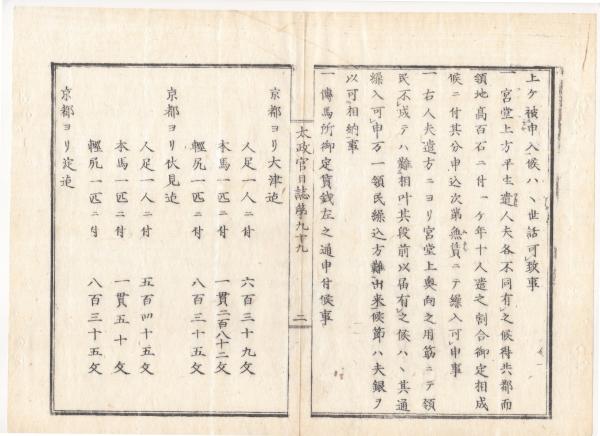 上ケ被申入候ハヽ世話可致事
一宮堂上方平生遣人夫各不同有之候得共都而
領地高百石ニ付一ケ年十人遣之割合御定相成
候ニ付其分申込次第無賃ニテ繰入可申事
一右人夫遣方ニヨリ宮堂上奥向之用筋ニテ領
民不成テハ難相叶其段前以届有之候ハヽ其通
繰入可申万一領民繰込方難出来候節ハ夫銀ヲ
以可相納事
一傳馬所御定賃錢左之通申付候事
太政官日誌第九十九
二
京都ヨリ大津迄
人足一人ニ付 六百三十九文
本馬一匹ニ付 一貫二百八十二文
輕尻一匹ニ付 八百三十五文
京都ヨリ伏見迄
人足一人ニ付 五百四十五文
本馬一匹ニ付 一貫五十文
輕尻一匹ニ付 八百三十五文
京都ヨリ淀迄